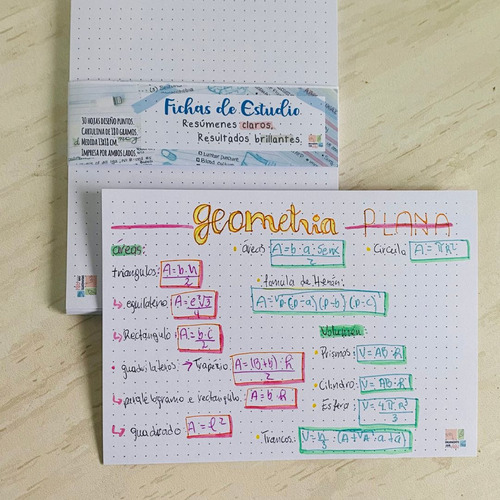 Fichas de Estudio
Resúmenes claros,
Resultados brillantes.
30 HOJAS DISEÑO PUNTOS.
CARTULINA DE 180 GRAMOS.
MEDIDA 13X18 CM.
IMPRESA POR AMBOS LADOS.
geometria PLANA
áreas:
triángulos: A=b·h/2
↳ equilatero: A=e²√3/4
↳ Rectángulo: A=b·c/2
• quadriláteros: → Trapezio: A=(B+b)·h/2
↳ paralelogramo e rectangulo: A=b·h
↳ quadrado: A=l²
• áreas: A=b·a·senx/2
• fórmula de Herón:
A=√p·(p-a)(p-b)(p-c)
• Círculo: A=πR²
Volumen:
• Prismas: V=AB·h
• Cilindro: V=AB·h
• Esfera: V=4πR³/3
• Troncos: